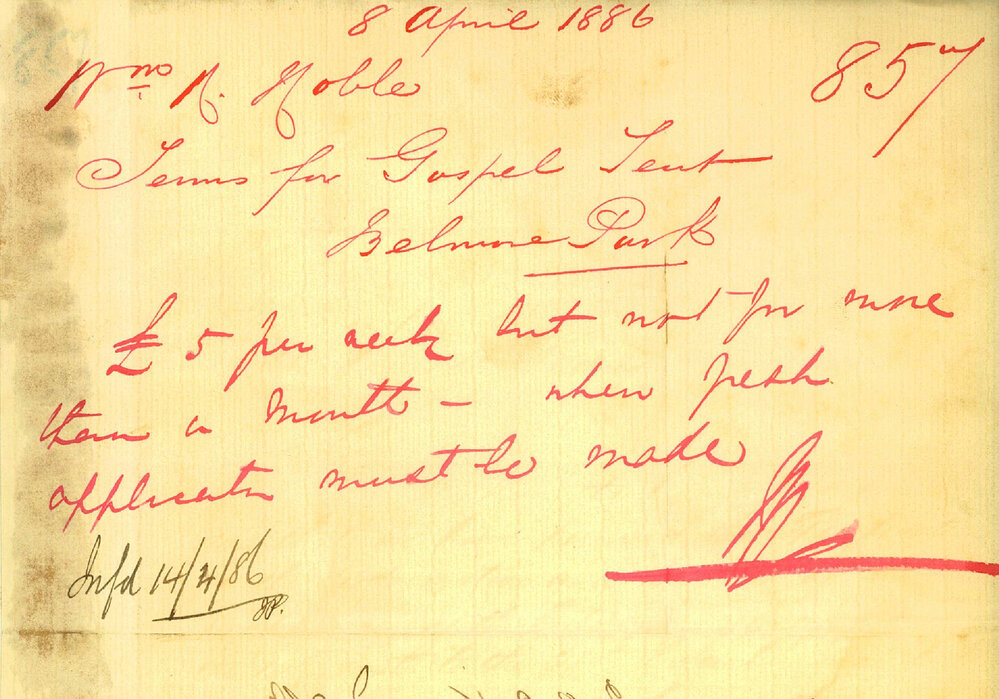 8 April 1886
Wm Noble
857
Terms for Gospel Tent
Belmore Park
£ 5 per week but not for more
than a month - when fresh
applicatn must be made
Infd 14/4/86